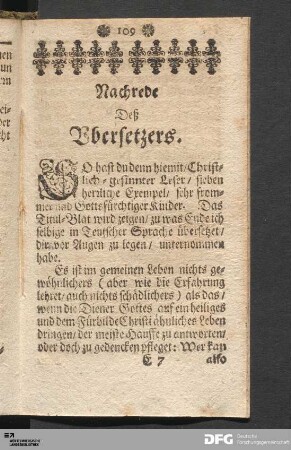 109
Nachrede
Deß
Vbersetzers.
SO hast du denn hiemit/ Christ-
lich-gesinnter Leser/ sieben
herzliche Exempel/ sehr from-
mer und Gottsfürchtiger Kinder. Das
Titul-Blat wird zeigen/ zu was Ende ich
selbige in Teutscher Sprache übersetzet/
dir vor Augen zu legen/ unternommen
habe.
Es ist im gemeinen Leben nichts ge-
wöhnlichers (aber wie die Erfahrung
lehret/ auch nichts schädlichers) als das/
wenn die Diener Gottes auf ein heiliges
und dem Fürbilde Christi ähnliches Leben
dringen/ der meiste Hauffe zu antworten/
oder doch zu gedencken pfleget: Wer kan
E 7 also
DFG Deutsche
Forschungsgemeinschaft